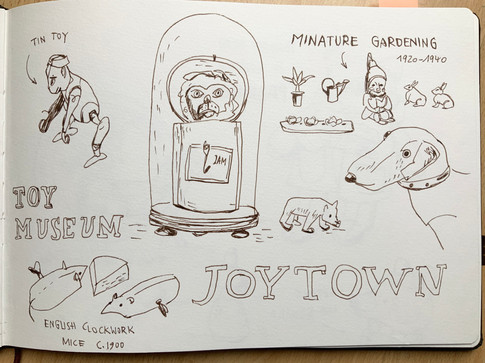 TIN TOY
MINATURE GARDENING
1920-1940
2AM
TOY
MUSEUM
JOYTOWN
ENGLISH CLOCKWORK
MICE C.1900